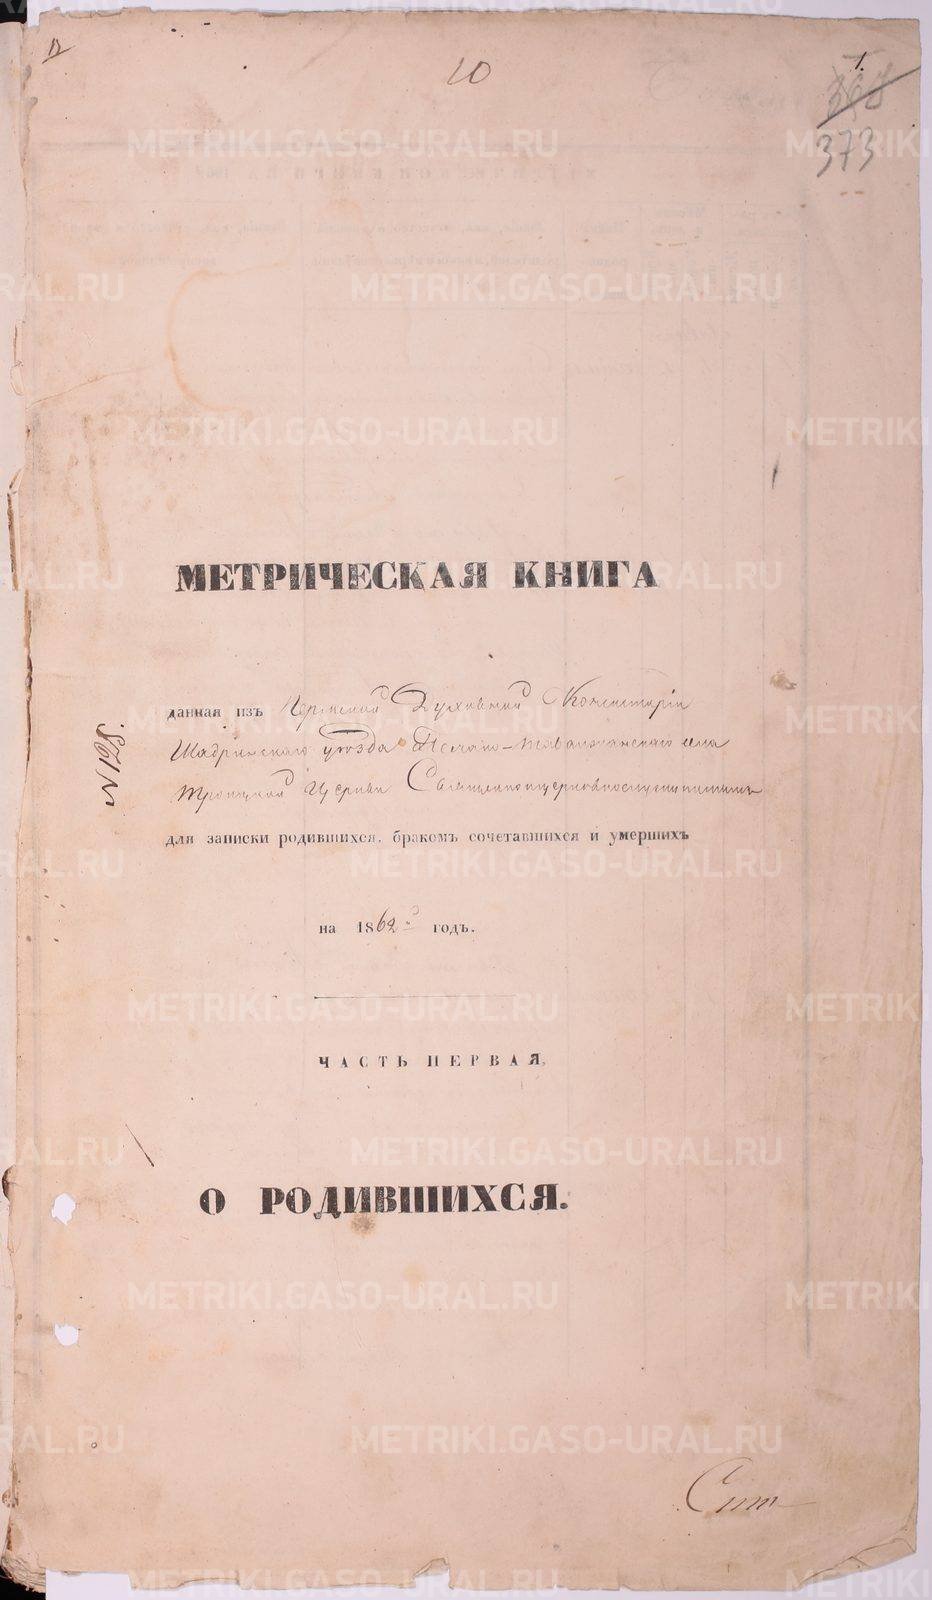 10
1.
368
373
МЕТРИЧЕСКАЯ КНИГА
данная изъ Пермской Духовной Консисторіи
Шадринскаго уѣзда Песчано-Таволжанскаго села
Троицкой Церкви Священноцерковнослужителямъ
для записки родившихся, бракомъ сочетавшихся и умершихъ
№ 198
на 1862й годъ.
ЧАСТЬ ПЕРВАЯ.
О РОДИВШИХСЯ.
METRIKI.GASO-URAL.RU